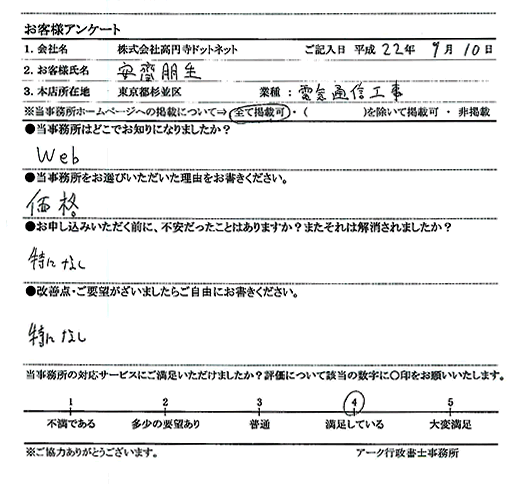 お客様アンケート
1. 会社名 株式会社高円寺ドットネット ご記入日 平成 22年 9月 10日
2. お客様氏名 安齋朋生
3. 本店所在地 東京都杉並区 業種：電気通信工事
※当事務所ホームページへの掲載について⇒ 全て掲載可・( )を除いて掲載可・非掲載
●当事務所はどこでお知りになりましたか？
Web
●当事務所をお選びいただいた理由をお書きください。
価格
●お申し込みいただく前に、不安だったことはありますか？またそれは解消されましたか？
特になし
●改善点・ご要望がざいましたらご自由にお書きください。
特になし
当事務所の対応サービスにご満足いただけましたか？評価について該当の数字に〇印をお願いいたします。
1 2 3 4 5
不満である 多少の要望あり 普通 満足している 大変満足
※ご協力ありがとうございます。 アーク行政書士事務所